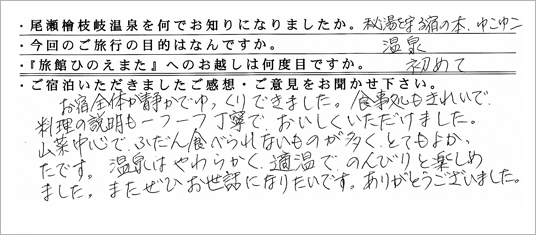 ・尾瀬檜枝岐温泉を何でお知りになりましたか。秘湯を守る宿の本、ゆこゆこ
・今回のご旅行の目的はなんですか。 温泉
・『旅館ひのえまた』へのお越しは何度目ですか。 初めて
・ご宿泊いただきましたご感想・ご意見をお聞かせ下さい。
お宿全体が静かでゆっくりできました。食事処もきれいで、
料理の説明も一つ一つ丁寧で、おいしくいただけました。
山菜中心で、ふだん食べられないものが多く、とてもよかっ
たです。温泉はやわらかく、適温で、のんびりと楽しめ
ました。またぜひお世話になりたいです。ありがとうございました。